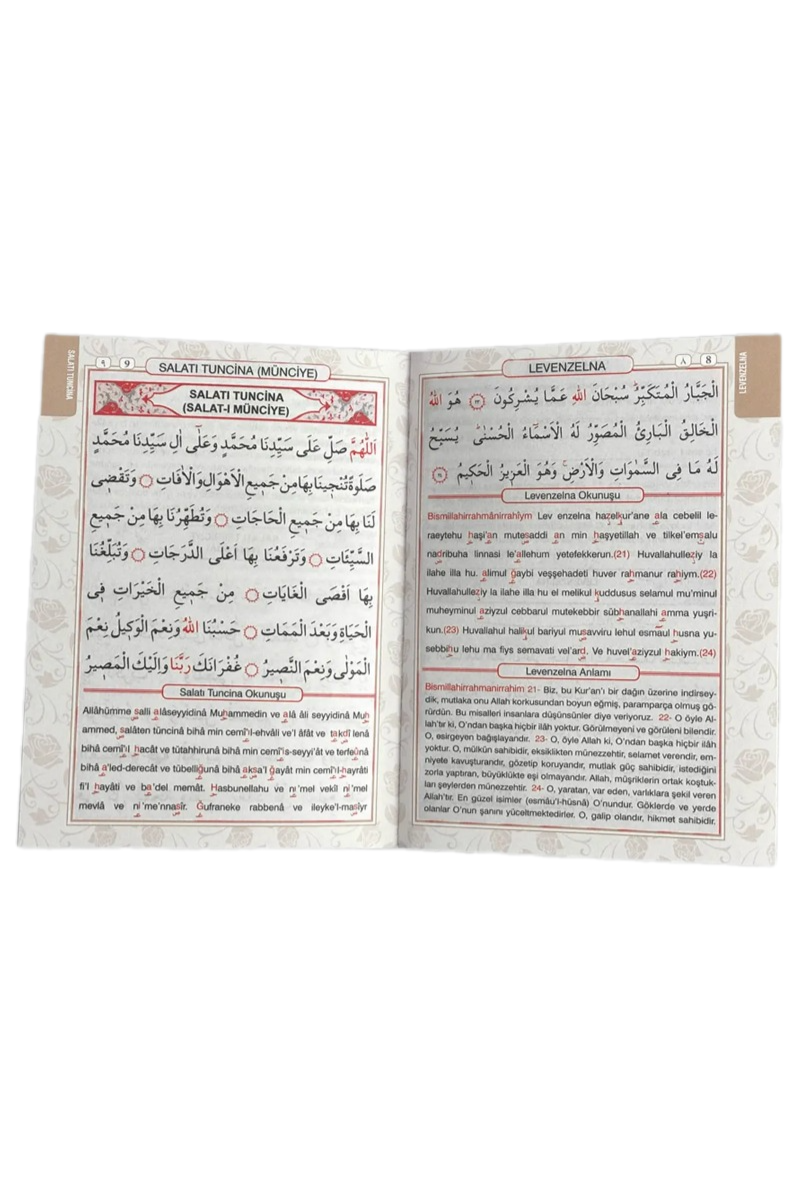 LEVENZELNA
٨ 8
LEVENZELNA
الْجَبَّارُ الْمُتَكَبِّرُ سُبْحَانَ اللهِ عَمَّا يُشْرِكُونَ ﴿٢٣﴾ هُوَ اللهُ
الْخَالِقُ الْبَارِئُ الْمُصَوِّرُ لَهُ الْاَسْمَاءُ الْحُسْنٰى يُسَبِّحُ
لَهُ مَا فِى السَّمٰوَاتِ وَالْاَرْضِ وَهُوَ الْعَزِيزُ الْحَكِيمُ ﴿٢٤﴾
Levenzelna Okunuşu
Bismillahirrahmânirrahîym Lev enzelna hazelkur'ane ala cebelil le-
raeytehu haşi'an mutesaddi an min haşyetillah ve tilkel'emsalu
nadribuha linnasi le'allehum yetefekkerun.(21) Huvallahulleziy la
ilahe illa hu. alimul ğaybi veşşehadeti huver rahmanur rahiym.(22)
Huvallahulleziy la ilahe illa hu el melikul kuddusus selamul mu'minul
muheyminul aziyzul cebbarul mutekebbir sübhanallahi amma yuşri-
kun.(23) Huvallahul halikul bariyul musavviru lehul esmaul husna yu-
sebbihu lehu ma fiys semavati vel'ard. Ve huvel'aziyzul hakiym.(24)
Levenzelna Anlamı
Bismillahirrahmanirrahim 21- Biz, bu Kur'an'ı bir dağın üzerine indirsey-
dik, mutlaka onu Allah korkusundan boyun eğmiş, paramparça olmuş gö-
rürdün. Bu misalleri insanlara düşünsünler diye veriyoruz. 22- O öyle Al-
lah'tır ki, O'ndan başka hiçbir ilâh yoktur. Görülmeyeni ve görüleni bilendir.
O, esirgeyen bağışlayandır. 23- O, öyle Allah ki, O'ndan başka hiçbir ilâh
yoktur. O, mülkün sahibidir, eksiklikten münezzehtir, selamet verendir, em-
niyete kavuşturandır, gözetip koruyandır, mutlak güç sahibidir, istediğini
zorla yaptıran, büyüklükte eşi olmayandır. Allah, müşriklerin ortak koştuk-
ları şeylerden münezzehtir. 24- O, yaratan, var eden, varlıklara şekil veren
Allah'tır. En güzel isimler (esmâu'l-hüsnâ) O'nundur. Göklerde ve yerde
olanlar O'nun şanını yüceltmektedirler. O, galip olandır, hikmet sahibidir.
SALATI TUNCİNA
٩ 9
SALATI TUNCİNA (MÜNCİYE)
SALATI TUNCİNA
(SALAT-I MÜNCİYE)
اَللّٰهُمَّ صَلِّ عَلٰى سَيِّدِنَا مُحَمَّدٍ وَعَلٰٓى اٰلِ سَيِّدِنَا مُحَمَّدٍ
صَلٰوةً تُنْجِينَا بِهَا مِنْ جَمِيعِ الْاَهْوَالِ وَالْاٰفَاتِ ۝ وَتَقْضِى
لَنَا بِهَا مِنْ جَمِيعِ الْحَاجَاتِ ۝ وَتُطَهِّرُنَا بِهَا مِنْ جَمِيعِ
السَّيِّئَاتِ ۝ وَتَرْفَعُنَا بِهَا اَعْلَى الدَّرَجَاتِ ۝ وَتُبَلِّغُنَا
بِهَا اَقْصَى الْغَايَاتِ ۝ مِنْ جَمِيعِ الْخَيْرَاتِ فِى
الْحَيَاةِ وَبَعْدَ الْمَمَاتِ ۝ حَسْبُنَا اللهُ وَنِعْمَ الْوَكِيلُ نِعْمَ
الْمَوْلٰى وَنِعْمَ النَّصِيرُ ۝ غُفْرَانَكَ رَبَّنَا وَاِلَيْكَ الْمَصِيرُ
Salatı Tuncina Okunuşu
Allâhümme salli alâseyyidinâ Muhammedin ve alâ âli seyyidinâ Muh
ammed, salâten tüncinâ bihâ min cemî'l-ehvâli ve'l âfât ve takdî lenâ
bihâ cemî'l-hacât ve tütahhirunâ bihâ min cemî'is-seyyi'ât ve terfeûnâ
bihâ a'led-derecât ve tübelliğunâ bihâ aksa'l ğayât min cemî'l-hayrâti
fi'l hayâti ve ba'del memât. Hasbunellahu ve ni'mel vekîl ni'mel
mevlâ ve ni'me'nnasîr. Ğufraneke rabbenâ ve ileyke'l-masîyr